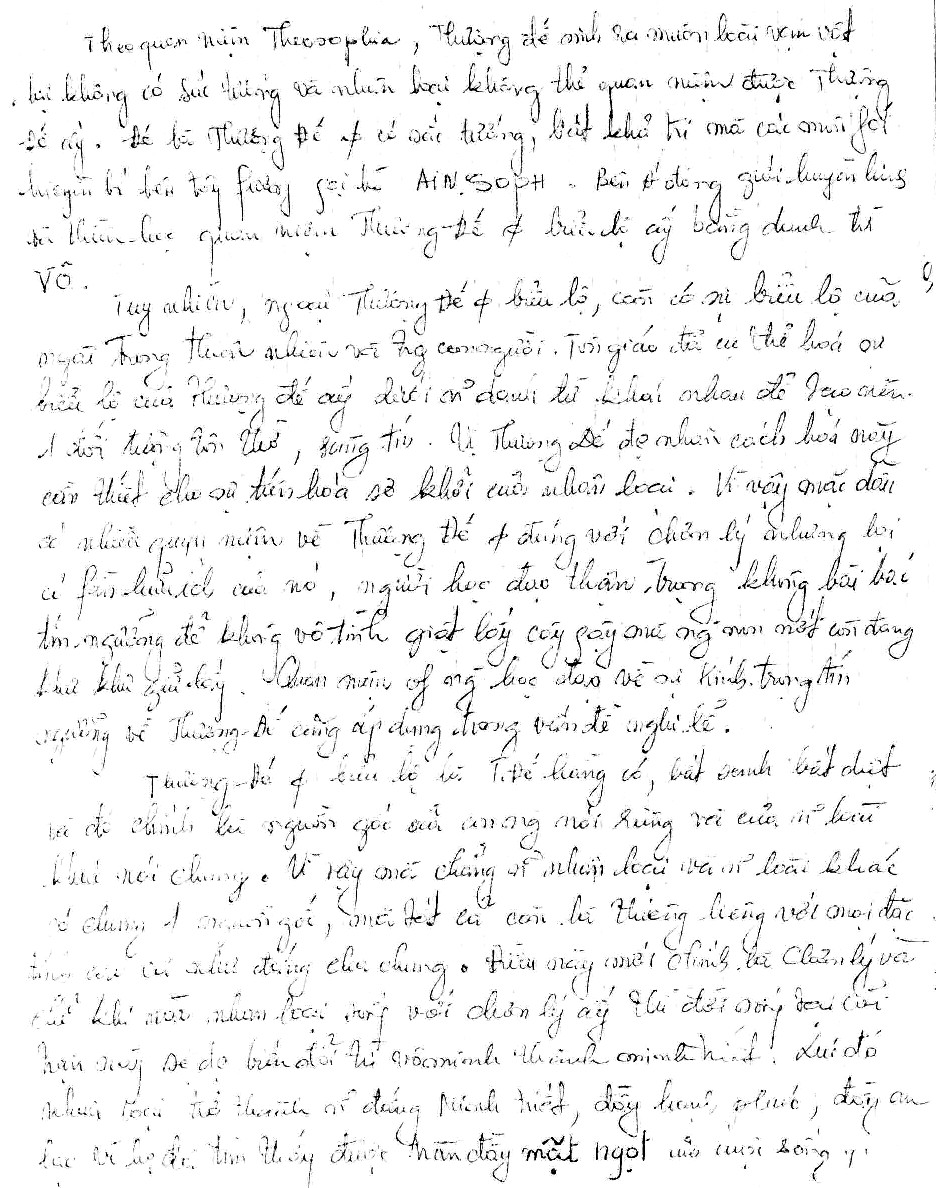 Theo quan niệm Theosophia, Thượng đế sinh ra muôn loài vạn vật
lại không có sắc tướng và nhân loại không thể quan niệm được Thượng
Đế ấy. Đó là Thượng Đế ∅ có sắc tướng, bất khả tri mà các môn fái
huyền bí bên tây fương gọi là AIN SOPH. Bên đông giới huyền linh
và thiền học quan niệm Thượng-Đế ∅ biểu lộ ấy bằng danh từ
VÔ.
Tuy nhiên, ngoài Thượng Đế ∅ biểu lộ, còn có sự biểu lộ của
ngài trong thiên nhiên và trg con người. Tôn giáo đã cụ thể hoá sự
biểu lộ của Thượng đế ấy dưới n~ danh từ khác nhau để tạo nên
1 đối tượng tôn thờ, sùng tín. Vị Thượng Đế đc nhân cách hoá này
cần thiết cho sự tiến hóa sơ khởi của nhân loại. Vì vậy mặc dầu
có nhiều quan niệm về Thượng Đế ∅ đúng với chân lý nhưng lại
có fần hữu ích của nó, người học đạo thận trọng không bài bác
tín ngưỡng để không vô tình giật lấy cây gậy mà ng non nớt còn đang
khư khư giữ lấy. Quan niệm of ng học đạo về sự kính trọng tín
ngưỡng về Thượng-Đế cũng áp dụng trong vấn đề nghi lễ.
Thượng-Đế ∅ biểu lộ là T.Đế hằng có, bất sanh bất diệt
và đó chính là nguồn gốc của con ng nói riêng và của n~ loài
khác nói chung. Vì vậy mà chẳng n~ nhân loại và n~ loài khác
có chung 1 nguồn gốc, mà tất cả còn là thiêng liêng với mọi đặc
tính cao cả như đấng cha chung. Điều này mới chính là Chân lý và
chỉ khi nào nhân loại sống với chân lý ấy thì đời sống
hạn sẽ đc biến đổi từ vô minh thành minh triết. Lúc đó
nhân loại trở thành n~ đấng Minh triết, đầy hạnh phúc, đầy an
lạc vì họ đã tìm thấy được tràn đầy mật ngọt của cuộc sống